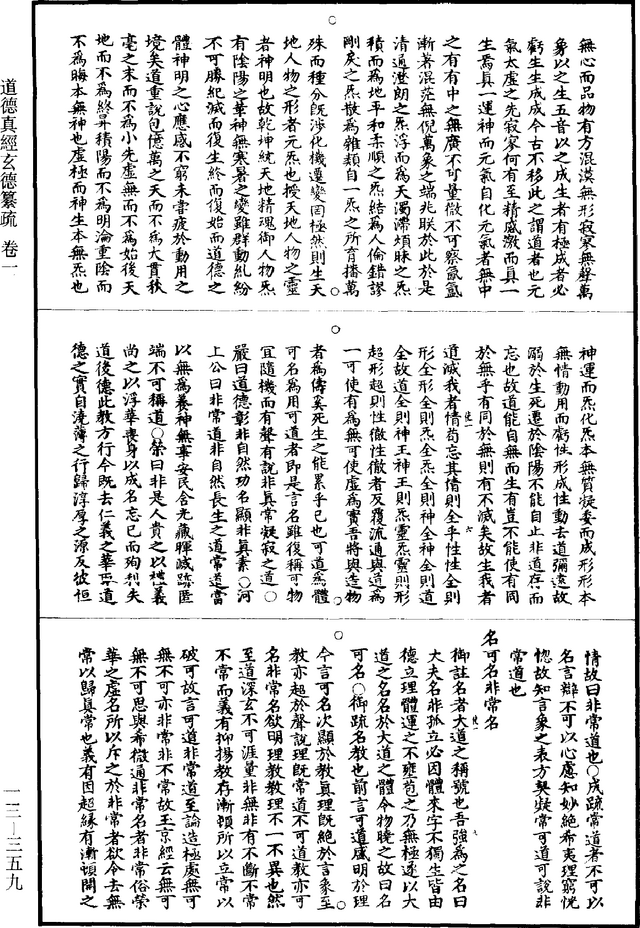 無心而品物有方混漠無形寂寥無聲萬
象以之生五音以之成生者有極成者必
虧生生成成今古不移此之謂道者也元
氣太虛之先寂寥何有至精感激而真一
生焉真一運神而元氣自化元氣者無中
之有有中之無廣不可量微不可察氤氳
漸著混茫無倪萬象之端兆朕於此於是
清通澄朗之炁浮而為天濁滯煩昧之炁
積而為地平和柔順之炁結為人倫錯謬
剛戾之炁散為雜類自一炁之所育播萬
殊而種分既涉化機遷變罔極然則生天
地人物之形者元炁也授天地人物之靈
者神明也故乾坤統天地精魂御人物炁
有陰陽之革神無寒暑之變雖群動糺紛
不可勝紀滅而復生終而復始而道德之
體神明之心應感不窮未嘗疲於動用之
境矣道重說包億萬之天而不為大貫秋
毫之末而不為小先虛無而不為始後天
地而不為終昇積陽而不為明淪重陰而
不為晦本無神也虛極而神生本無炁也
神運而炁化炁本無質凝委而成形形本
無情動用而虧性形成性動去道彌遠故
溺於生死遷於陰陽不能自止非道存而
忘也故道能自無而生有豈不能使有同
於無乎有同於無則有不滅矣故生我者
道滅我者情苟忘其情則全乎性性全則
形全形全則炁全炁全則神全神全則道
全故道全則神王神王則炁靈炁靈則形
超形超則性徹性徹者反覆流通與道為
一可使有為無可使虛為實吾將與造物
者為儔奚死生之能累乎己也可道為體
可名為用可道者即是言名雖復稱可物
宜隨機而有聲有說非真常凝寂之道○
嚴曰道德彰非自然功名顯非真素○河
上公曰非常道非自然長生之道常道當
以無為養神無事安民含光藏暉滅跡匿
端不可稱道○榮曰非是人貴之以禮義
尚之以浮華喪身以成名忘己而殉利失
道後德此教方行今既去仁義之華取道
德之實自澆薄之行歸淳厚之源反彼恒
情故曰非常道也○成疏常道者不可以
名言辯不可以心慮知妙絕希夷理窮恍
惚故知言象之表方契凝常可道可說非
常道也
名可名非常名
御註名者大道之稱號也吾強為之名曰
大夫名非孤立必因體來字不獨生皆由
德立理體運之不壅苞之乃無極遂以大
道之名名於大道之體令物曉之故曰名
可名○御疏名教也前言可道盛明於理
今言可名次顯於教真理既絕於言象至
教亦超於聲說理既常道不可道教亦可
名非常名欲明理教教理不一不異也然
至道深玄不可涯量非無非有不斷不常
不常而義有抑揚教存漸頓所以立常以
破可故言可道非常道至論造極處無可
無不可亦非常非不常故玉京經云無可
無不可思與希微通非常名者非常俗榮
華之虛名所以斥之於非常者欲令去無
常以歸真常也義有因超緣有漸頓開之
道德真經玄德纂疏 卷一
一三—三五九